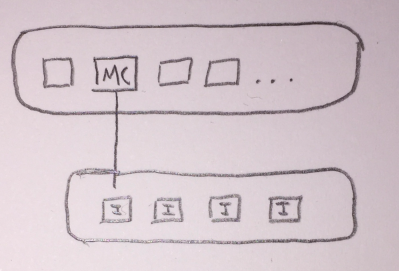 MC ...
I I J I